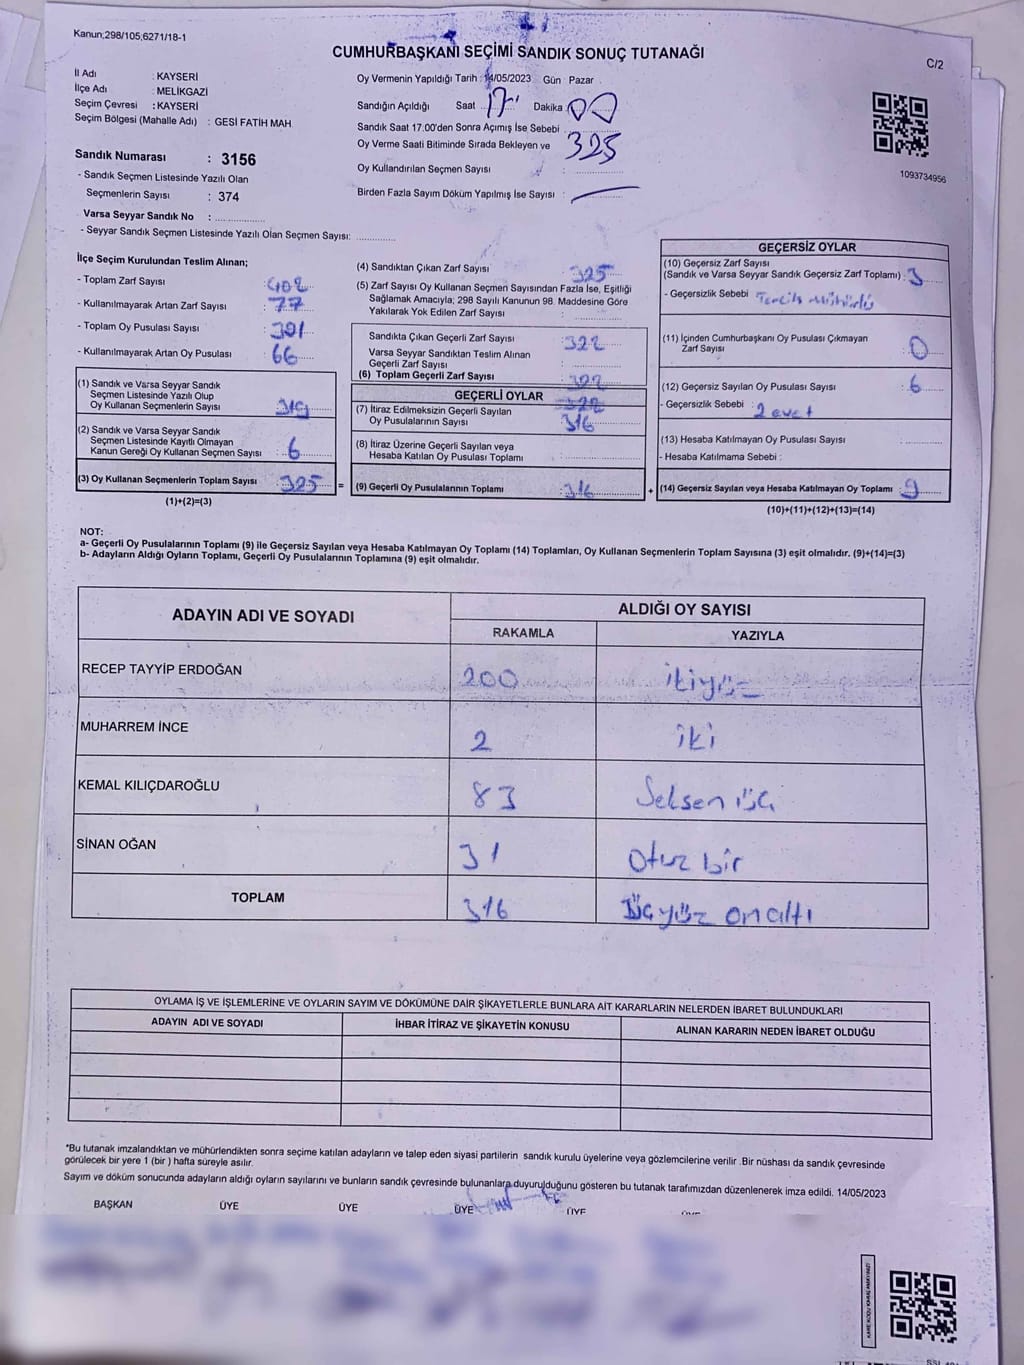 Kanun;298/105,6271/18-1
CUMHURBAŞKANI SEÇİMİ SANDIK SONUÇ TUTANAĞI
C/2
İl Adı : KAYSERİ
İlçe Adı : MELİKGAZİ
Seçim Çevresi : KAYSERİ
Seçim Bölgesi (Mahalle Adı) : GESİ FATİH MAH
Sandık Numarası : 3156
- Sandık Seçmen Listesinde Yazılı Olan
Seçmenlerin Sayısı : 374
Varsa Seyyar Sandık No :
- Seyyar Sandık Seçmen Listesinde Yazılı Olan Seçmen Sayısı:
Oy Vermenin Yapıldığı Tarih : 14/05/2023 Gün Pazar
Sandığın Açıldığı Saat 17 Dakika 00
Sandık Saat 17:00'den Sonra Açımış İse Sebebi :
Oy Verme Saati Bitiminde Sırada Bekleyen ve 325
Oy Kullandırılan Seçmen Sayısı :
Birden Fazla Sayım Döküm Yapılmış İse Sayısı :
1093734956
İlçe Seçim Kurulundan Teslim Alınan;
- Toplam Zarf Sayısı : 402
- Kullanılmayarak Artan Zarf Sayısı : 77
- Toplam Oy Pusulası Sayısı 391
- Kullanılmayarak Artan Oy Pusulası 66
(1) Sandık ve Varsa Seyyar Sandık
Seçmen Listesinde Yazılı Olup
Oy Kullanan Seçmenlerin Sayısı 319
(2) Sandık ve Varsa Seyyar Sandık
Seçmen Listesinde Kayıtlı Olmayan
Kanun Gereği Oy Kullanan Seçmen Sayısı : 6
(3) Oy Kullanan Seçmenlerin Toplam Sayısı : 325 =
(1)+(2)=(3)
(4) Sandıktan Çıkan Zarf Sayısı 325
(5) Zarf Sayısı Oy Kullanan Seçmen Sayısından Fazla İse, Eşitliği
Sağlamak Amacıyla; 298 Sayılı Kanunun 98. Maddesine Göre
Yakılarak Yok Edilen Zarf Sayısı
Sandıkta Çıkan Geçerli Zarf Sayısı : 322
Varsa Seyyar Sandıktan Teslim Alınan
Geçerli Zarf Sayısı
(6) Toplam Geçerli Zarf Sayısı : 322
GEÇERLİ OYLAR
(7) İtiraz Edilmeksizin Geçerli Sayılan 322
Oy Pusulalarının Sayısı 316
(8) İtiraz Üzerine Geçerli Sayılan veya
Hesaba Katılan Oy Pusulası Toplamı
(9) Geçerli Oy Pusulalarının Toplamı : 316 +
GEÇERSİZ OYLAR
(10) Geçersiz Zarf Sayısı
(Sandık ve Varsa Seyyar Sandık Geçersiz Zarf Toplamı) : 3
- Geçersizlik Sebebi : Tercih Mühürlü
(11) İçinden Cumhurbaşkanı Oy Pusulası Çıkmayan
Zarf Sayısı 0
(12) Geçersiz Sayılan Oy Pusulası Sayısı : 6
- Geçersizlik Sebebi : 2 evet
(13) Hesaba Katılmayan Oy Pusulası Sayısı
- Hesaba Katılmama Sebebi :
(14) Geçersiz Sayılan veya Hesaba Katılmayan Oy Toplamı : 9
(10)+(11)+(12)+(13)=(14)
NOT:
a- Geçerli Oy Pusulalarının Toplamı (9) ile Geçersiz Sayılan veya Hesaba Katılmayan Oy Toplamı (14) Toplamları, Oy Kullanan Seçmenlerin Toplam Sayısına (3) eşit olmalıdır. (9)+(14)=(3)
b- Adayların Aldığı Oyların Toplamı, Geçerli Oy Pusulalarının Toplamına (9) eşit olmalıdır.
ADAYIN ADI VE SOYADI ALDIĞI OY SAYISI
RAKAMLA YAZIYLA
RECEP TAYYİP ERDOĞAN 200 ikiyüz
MUHARREM İNCE 2 iki
KEMAL KILIÇDAROĞLU 83 Seksen üç
SİNAN OĞAN 31 Otuz bir
TOPLAM 316 Üçyüz onaltı
OYLAMA İŞ VE İŞLEMLERİNE VE OYLARIN SAYIM VE DÖKÜMÜNE DAİR ŞİKAYETLERLE BUNLARA AİT KARARLARIN NELERDEN İBARET BULUNDUKLARI
ADAYIN ADI VE SOYADI İHBAR İTİRAZ VE ŞİKAYETİN KONUSU ALINAN KARARIN NEDEN İBARET OLDUĞU
*Bu tutanak imzalandıktan ve mühürlendikten sonra seçime katılan adayların ve talep eden siyasi partilerin sandık kurulu üyelerine veya gözlemcilerine verilir .Bir nüshası da sandık çevresinde
görülecek bir yere 1 (bir ) hafta süreyle asılır.
Sayım ve döküm sonucunda adayların aldığı oyların sayılarını ve bunların sandık çevresinde bulunanlara duyurulduğunu gösteren bu tutanak tarafımızdan düzenlenerek imza edildi. 14/05/2023
BAŞKAN ÜYE ÜYE ÜYE ÜYE ÜYE